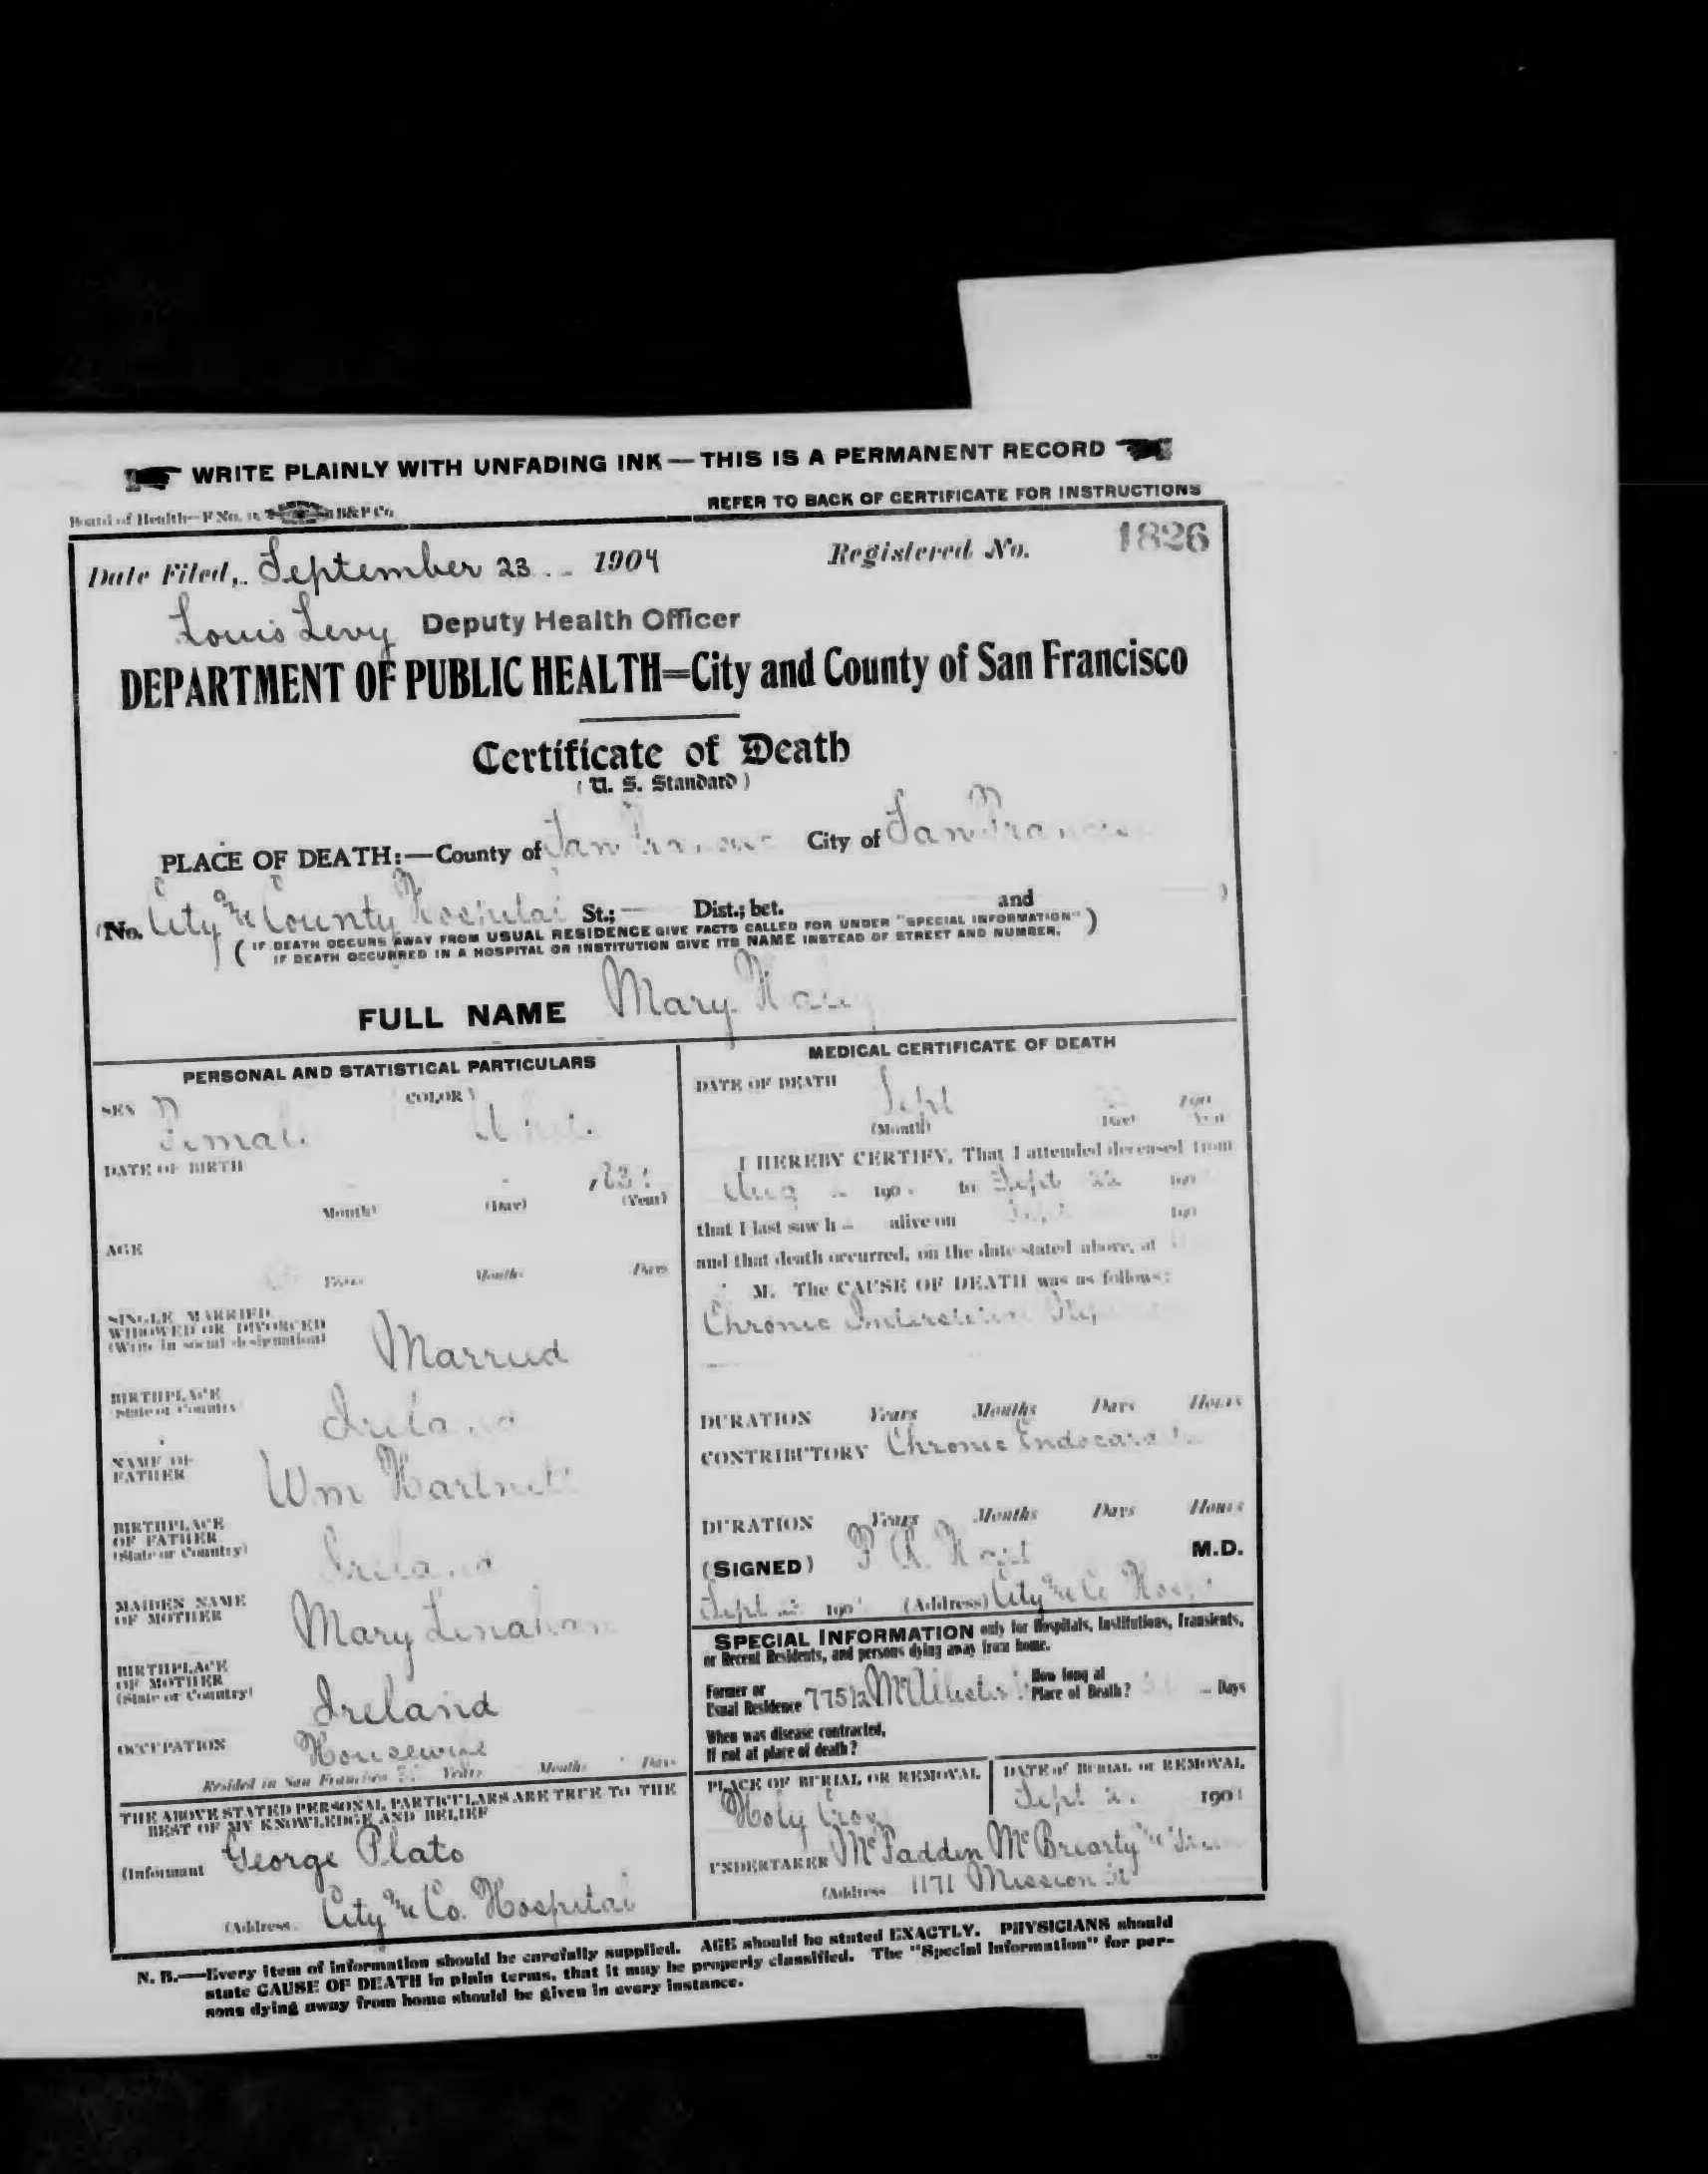 WRITE PLAINLY WITH UNFADING INK — THIS IS A PERMANENT RECORD
Board of Health—F No. B&P Co.
REFER TO BACK OF CERTIFICATE FOR INSTRUCTIONS
Date Filed, September 23 1904 Registered No. 1826
Louis Levy Deputy Health Officer
DEPARTMENT OF PUBLIC HEALTH=City and County of San Francisco
Certificate of Death
(U. S. Standard)
PLACE OF DEATH:—County of San City of San
(No. City and County Hospital St.; — Dist.; bet. and )
( IF DEATH OCCURS AWAY FROM USUAL RESIDENCE GIVE FACTS CALLED FOR UNDER "SPECIAL INFORMATION" )
IF DEATH OCCURRED IN A HOSPITAL OR INSTITUTION GIVE ITS NAME INSTEAD OF STREET AND NUMBER.
FULL NAME Mary
PERSONAL AND STATISTICAL PARTICULARS
SEX Female COLOR White
DATE OF BIRTH
(Month) (Day) (Year)
AGE
Years Months Days
SINGLE, MARRIED,
WIDOWED OR DIVORCED
(Write in social designation)
Married
BIRTHPLACE
State or Country
Ireland
NAME OF
FATHER
Wm Hartnett
BIRTHPLACE
OF FATHER
(State or Country)
Ireland
MAIDEN NAME
OF MOTHER
Mary Lenahan
BIRTHPLACE
OF MOTHER
(State or Country)
Ireland
OCCUPATION
Housewife
Resided in San Francisco Years Months Days
THE ABOVE STATED PERSONAL PARTICULARS ARE TRUE TO THE
BEST OF MY KNOWLEDGE AND BELIEF
(Informant George Plato
(Address City and Co. Hospital
MEDICAL CERTIFICATE OF DEATH
DATE OF DEATH
Sept 190
(Month) (Day) Year
I HEREBY CERTIFY, That I attended deceased from
Aug 190 to Sept 22 190
that I last saw h alive on Sept 190
and that death occurred, on the date stated above, at
M. The CAUSE OF DEATH was as follows:
Chronic Interstitial
DURATION Years Months Days Hours
CONTRIBUTORY Chronic Endocarditis
DURATION Years Months Days Hours
(SIGNED) M.D.
Sept 190 (Address) City and Co Hosp
SPECIAL INFORMATION only for Hospitals, Institutions, Transients,
or Recent Residents, and persons dying away from home.
Former or
Usual Residence 775½ McAllister
How long at
Place of Death? Days
When was disease contracted,
If not at place of death?
PLACE OF BURIAL OR REMOVAL
Holy Cross
DATE of BURIAL or REMOVAL
Sept 190
UNDERTAKER McFadden McBrearty
(Address 1171 Mission St
N. B.—Every item of information should be carefully supplied. AGE should be stated EXACTLY. PHYSICIANS should
state CAUSE OF DEATH in plain terms, that it may be properly classified. The "Special Information" for per-
sons dying away from home should be given in every instance.